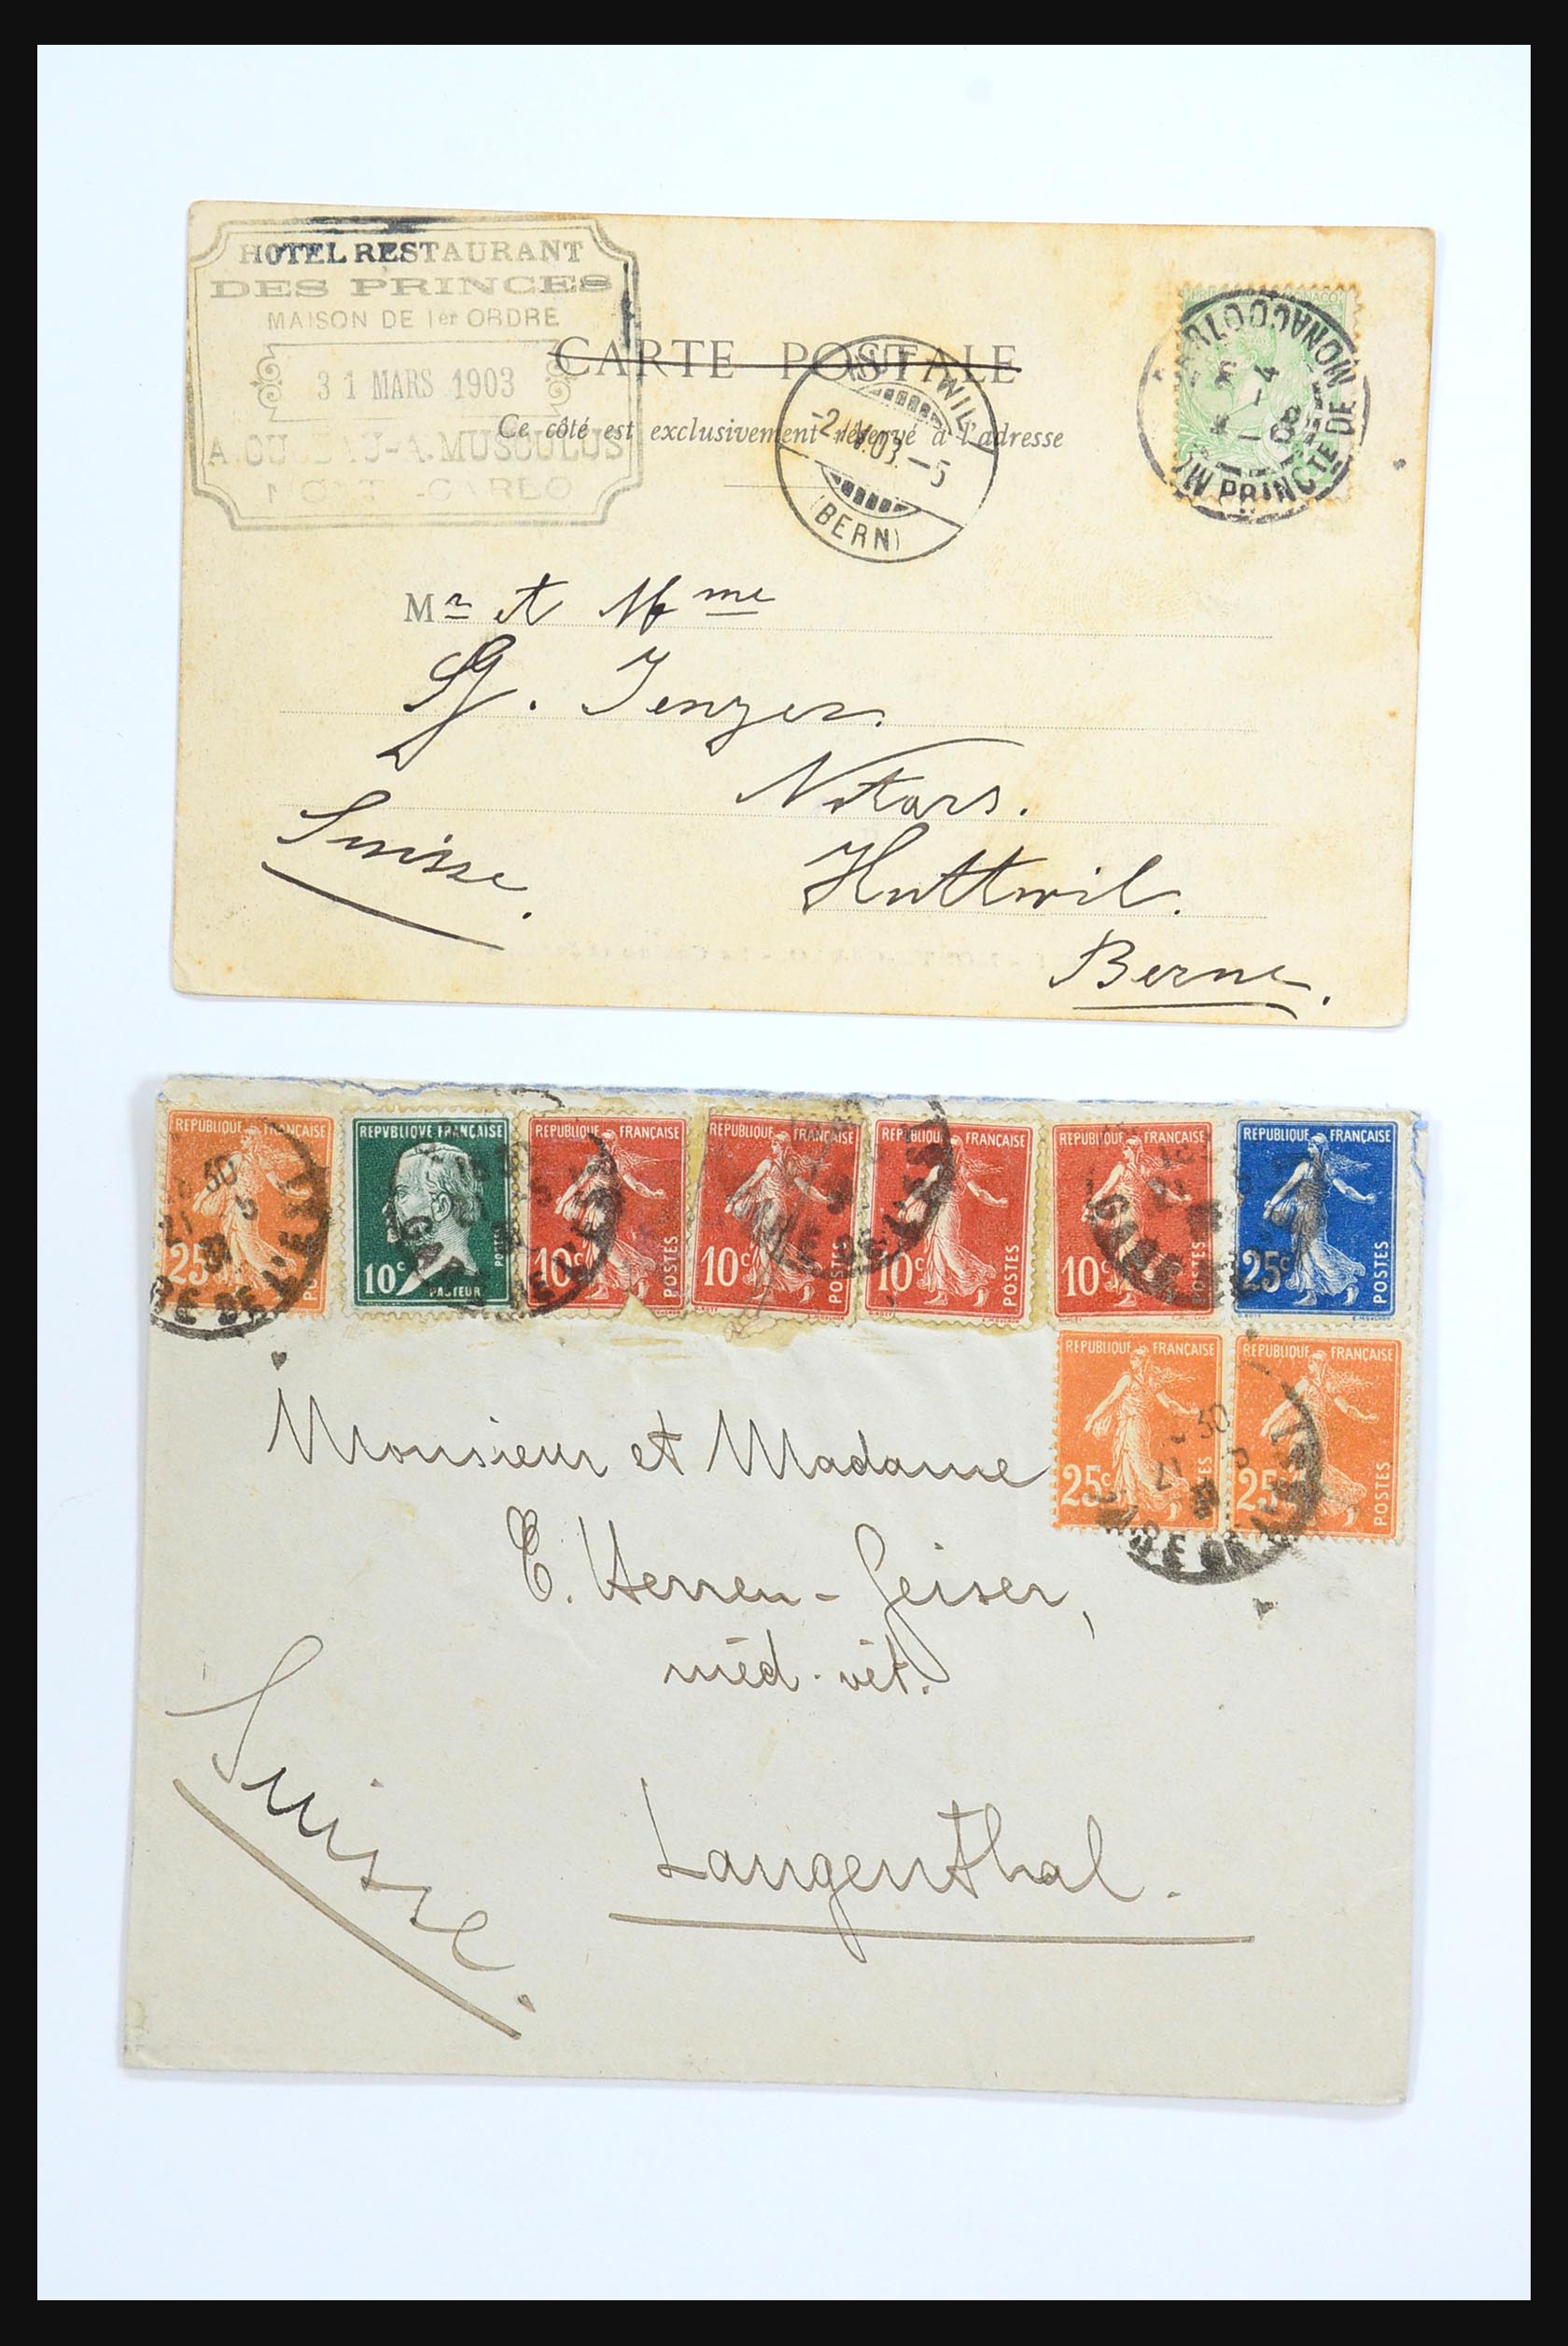 HOTEL RESTAURANT
DES PRINCES
MAISON DE 1er ORDRE
31 MARS 1903
A. MUSCULUS
CARTE POSTALE
Ce côté est exclusivement réservé à l'adresse
-2.IV.03.-5
(BERN)
PRINCTÉ DE MONACO
Mr et Mme
G. Jenzer.
Notars.
Suisse.
Huttwil.
Berne.
REPUBLIQUE FRANÇAISE
25c
REPVBLIQVE FRANÇAISE
10c
POSTES
PASTEUR
REPUBLIQUE FRANÇAISE
10c POSTES
REPUBLIQUE FRANÇAISE
10c POSTES
REPUBLIQUE FRANÇAISE
10c POSTES
REPUBLIQUE FRANÇAISE
10c POSTES
REPUBLIQUE FRANÇAISE
25c POSTES
REPUBLIQUE FRANÇAISE
25c POSTES
REPUBLIQUE FRANÇAISE
25c POSTES
GARE DE L'EST
Monsieur et Madame
E. Herren-Geiser,
méd. vét.
Suisse.
Langenthal.